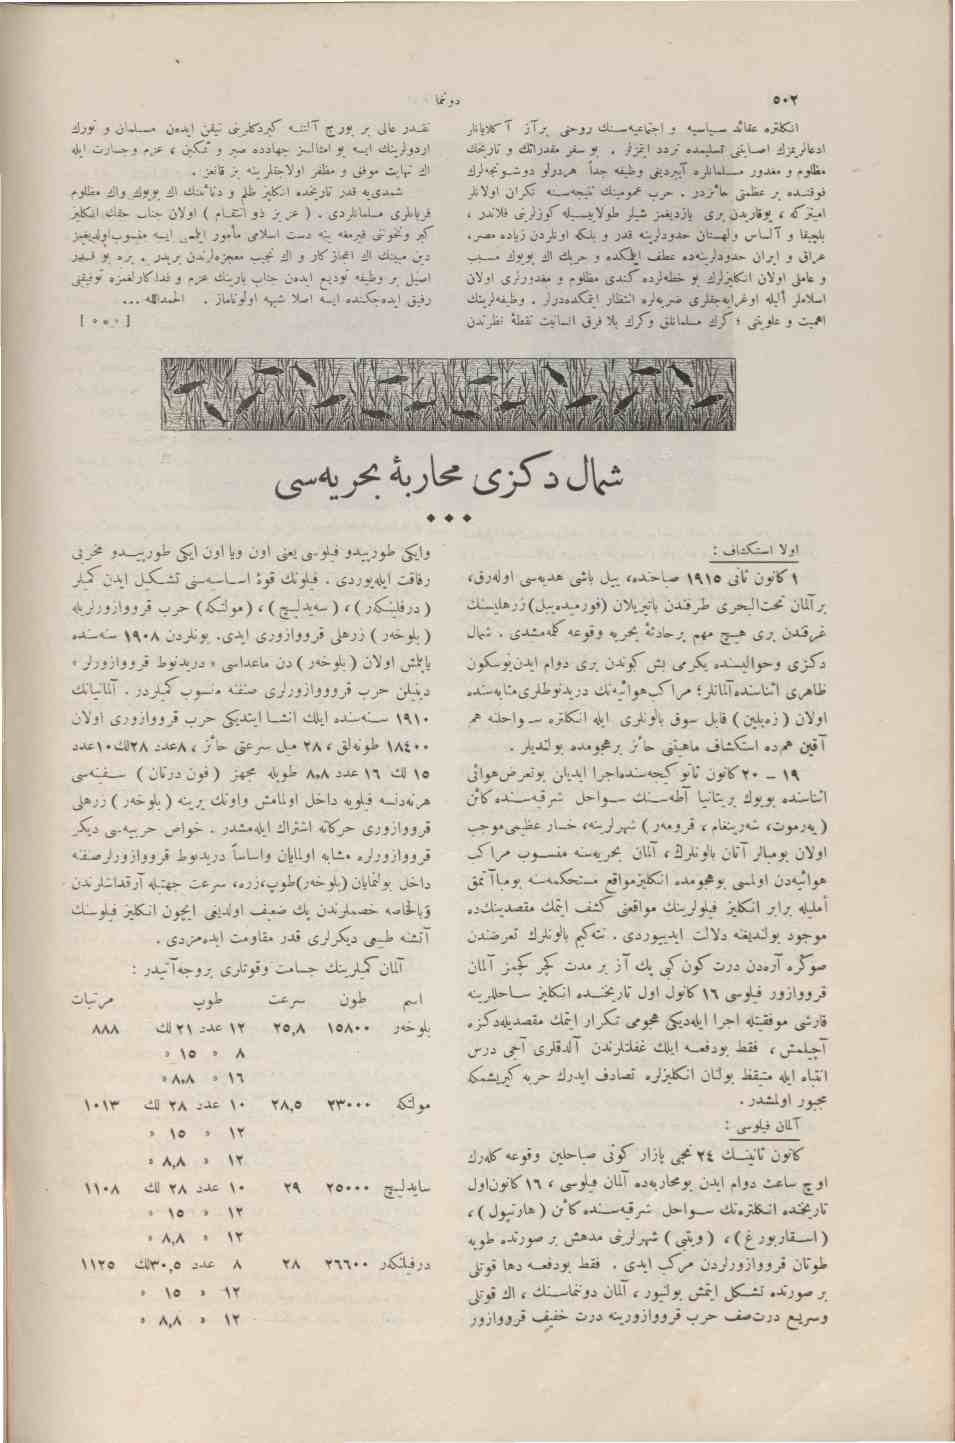 ٥٠٢
دونما
انكلتره عقائد سياسيه و اجتماعيه‌سنك روحنى برآز آكلايانلر
ادعالريمزك اصابتنى تسليمده تردد ايتمزلر . بو سفر مقدراتك و تاريخك
مظلوم و مغدور مسلمانلره آييرديغى وظيفه جداً هردرلو دوشونجه‌لرك
فوقنده بر عظمتى حائزدر . حرب عمومينك نتيجه‌سنه نكران اولانلر
اميتزكه ، يوقاريدن برى يازديغمز شيلر طولاييسيله كوزلرينى فلاندر ،
بلچيقا و آلساس ولهستان حدودلرينه قدر و بلكه اونلردن زياده مصر،
عراق و ايران حدودلرينه‌ده عطف ايتمكده و حربك اك بويوك مسبب
و عاملى اولان انكليزلرك بو خطه‌لرده كندى مظلوم و مغدورلرى اولان
اسلاملر اليله اوغرايه‌جقلرى ضربه‌لره انتظار ايتمكده‌درلر . وظيفه‌لرينك
اهميت و علويتى ؛ كرك مسلمانلق وكرك بلا فرق انسانيت نقطهٔ نظرندن
نقدر عالى بر بورج آلتنه كيردكلرينى تيقن ايده‌ن مسلمان و تورك
اردولرينك ايسه بو امثالسز جهادده صبر و تمكين ، عزم و جسارت ايله
اك نهايت موفق و مظفر اولاجقلرينه بز قانعز .
شمدى‌يه قدر تاريخده انكليز ظلم و دنائتنك اك بويوك واك مظلوم
قربانلرى مسلمانلردى . ( عزيز ذو انتقام ) اولان جناب حقك انكليز
كبر ونخوتنى قيرمغه ينه دست اسلامى مأمور ايتمسى ايسه منسوب‌اولديغمز
دين مبينك اك اعجازكار و اك نجيب معجزه‌لرندن بريدر . بزه بو
اصيل بر وظيفه توديع ايده‌ن جناب بارينك عزم و فداكارلغمزه توفيقنى
رفيق ايده‌جكنده ايسه اصلا شبهه اولوناماز . الحمدالله ...
[ *** ]
شمال دكزى محاربهٔ بحريه‌سى
اولا استكشاف :
١ كانون ثانى ١٩١٥ صباحنده، ييل باشى هديه‌سى اوله‌رق،
برآلمان تحت‌البحرى طرفندن باتيريلان (فورميده‌بيل) زرهليسنك
غرقندن برى هيچ مهم برحادثهٔ بحريه وقوعه كلمه‌مشدى . شمال
دكزى وحواليسنده يكرمى بش كوندن برى دوام ايدن‌بوسكون
ظاهرى اثناسنده‌آلمانلر؛ مراكب‌هوائيه‌نك دريدنوطلرى‌مثابه‌سنده
اولان ( زه‌پلين ) قابل سوق بالونلرى ايله انكلتره سواحلنه هم
آقين هم‌ده استكشاف ماهيتنى حائز برهجومده بولنديلر .
١٩ – ٢٠ كانون ثانى كيجه‌سنده‌اجرا ايديلن بوتعرض‌هوائى
اثناسنده بويوك بريتانيا آطه‌سنك سواحل شرقيه‌سنده كائن
( يه‌رموت، شه‌رينغام ، قرومه‌ر ) شهرلرينه، خسار عظيمى‌موجب
اولان بومبالر آتان بالونلرك ، آلمان بحريه‌سنه منسوب مراكب
هوائيه‌دن اولمسى بوهجومده انكليزمواقع مستحكمه‌سنه بومباآتمق
امليله برابر انكليز فيلولرينك مواقعنى كشف ايتمك مقصدينك‌ده
موجود بولنديغنه دلالت ايدييوردى . نته‌كيم بالونلرك تعرضندن
صوكره آره‌دن درت كون كبى پك آز بر مدت كچر كچمز آلمان
قرووازور فيلوسى ١٦ كانون اول تاريخنده انكليز ساحللرينه
قارشى موفقيتله اجرا ايله‌ديكى هجومى تكرار ايتمك مقصديله‌دكزه
آچيلمش ، فقط بودفعه ايلك غفلتلرندن آلدقلرى آجى درس
انتباه ايله متيقظ بولنان انكليزلره تصادف ايدرك حربه كيريشمكه
مجبور اولمشدر .
آلمان فيلوسى :
كانون ثانينك ٢٤ نجى پازار كونى صباحلين وقوعه كله‌رك
اوچ ساعت دوام ايدن بومحاربه‌ده آلمان فيلوسى ، ١٦ كانون‌اول
تاريخنده انكلتره‌نك سواحل شرقيه‌سنده كائن ( هارتپول ) ،
( اسقاربورغ ) ، ( ويتبى ) شهرلرينى مدهش بر صورتده طوپه
طوتان قرووازورلردن مركب ايدى . فقط بودفعه دها قوتلى
بر صورتده تشكل ايتمش بولنيور ، آلمان دونماسنك ، اك قوتلى
وسريع درت‌صف حرب قرووازورينه درت خفيف قرووازور
وايكى طورپيدو فيلوسى يعنى اون ويا اون ايكى طورپيدو مخربى
رفاقت ايله‌يوردى . فيلونك قوهٔ اساسيه‌سنى تشكيل ايدن كميلر
( درفلينكه‌ر ) ، ( سه‌يدليچ ) ، ( مولتكه ) حرب قرووازورلريله
( بلوخه‌ر ) زرهلى قرووازورى ايدى. بونلردن ١٩٠٨ سنه‌سنده
ياپلمش اولان ( بلوخه‌ر ) دن ماعداسى « دريدنوط قرووازورلر »
دينيلن حرب قرووازورلرى صنفنه منسوب كميلردر . آلمانيانك
١٩١٠ سنه‌سنده ايلك انشا ايتديكى حرب قرووازورى اولان
١٨٤٠٠ طونه‌لق ، ٢٨ ميل سرعتى حائز ، ٨عدد ٢٨لك ١٠عدد
١٥ لك ١٦ عدد ٨,٨ طوپله مجهز ( فون درتان ) سفينه‌سى
هرنه‌دنسه فيلويه داخل اولمامش واونك يرينه ( بلوخه‌ر ) زرهلى
قرووازورى حركاته اشتراك ايله‌مشدر . خواص حربيه‌سى ديكر
قرووازورلره مشابه اولمايان واساساً دريدنوط قرووازورلرصنفنه
داخل بولنمايان (بلوخه‌ر)طوپ،زره، سرعت جهتيله آرقداشلرندن
وبالخاصه خصملرندن پك ضعيف اولديغى ايچون انكليز فيلوسنك
آتشنه طبيعى ديكرلرى قدر مقاومت ايده‌مزدى .
آلمان كميلرينك جسامت وقوتلرى بروجه‌آتيدر :
اسم طون سرعت طوپ مرتبات
بلوخه‌ر ١٥٨٠٠ ٢٥,٨ ١٢ عدد ٢١ لك ٨٨٨
٨ » ١٥ »
١٦ » ٨,٨ »
مولتكه ٢٣٠٠٠ ٢٨,٥ ١٠ عدد ٢٨ لك ١٠١٣
١٢ » ١٥ »
١٢ » ٨,٨ »
سايدليچ ٢٥٠٠٠ ٢٩ ١٠ عدد ٢٨ لك ١١٠٨
١٢ » ١٥ »
١٢ » ٨,٨ »
درفيلنكه‌ر ٢٦٦٠٠ ٢٨ ٨ عدد ٣٠,٥لك ١١٢٥
١٢ » ١٥ »
١٢ » ٨,٨ »